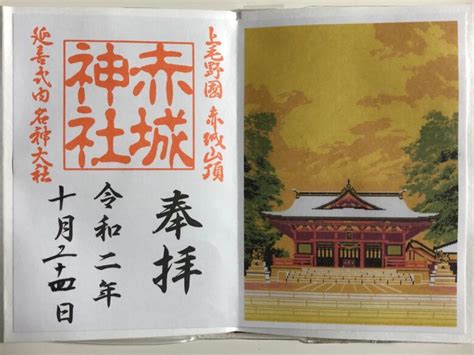 上毛野國 赤城山頂
赤城神社
延喜式内 名神大社
奉拝
令和二年
十月二十四日